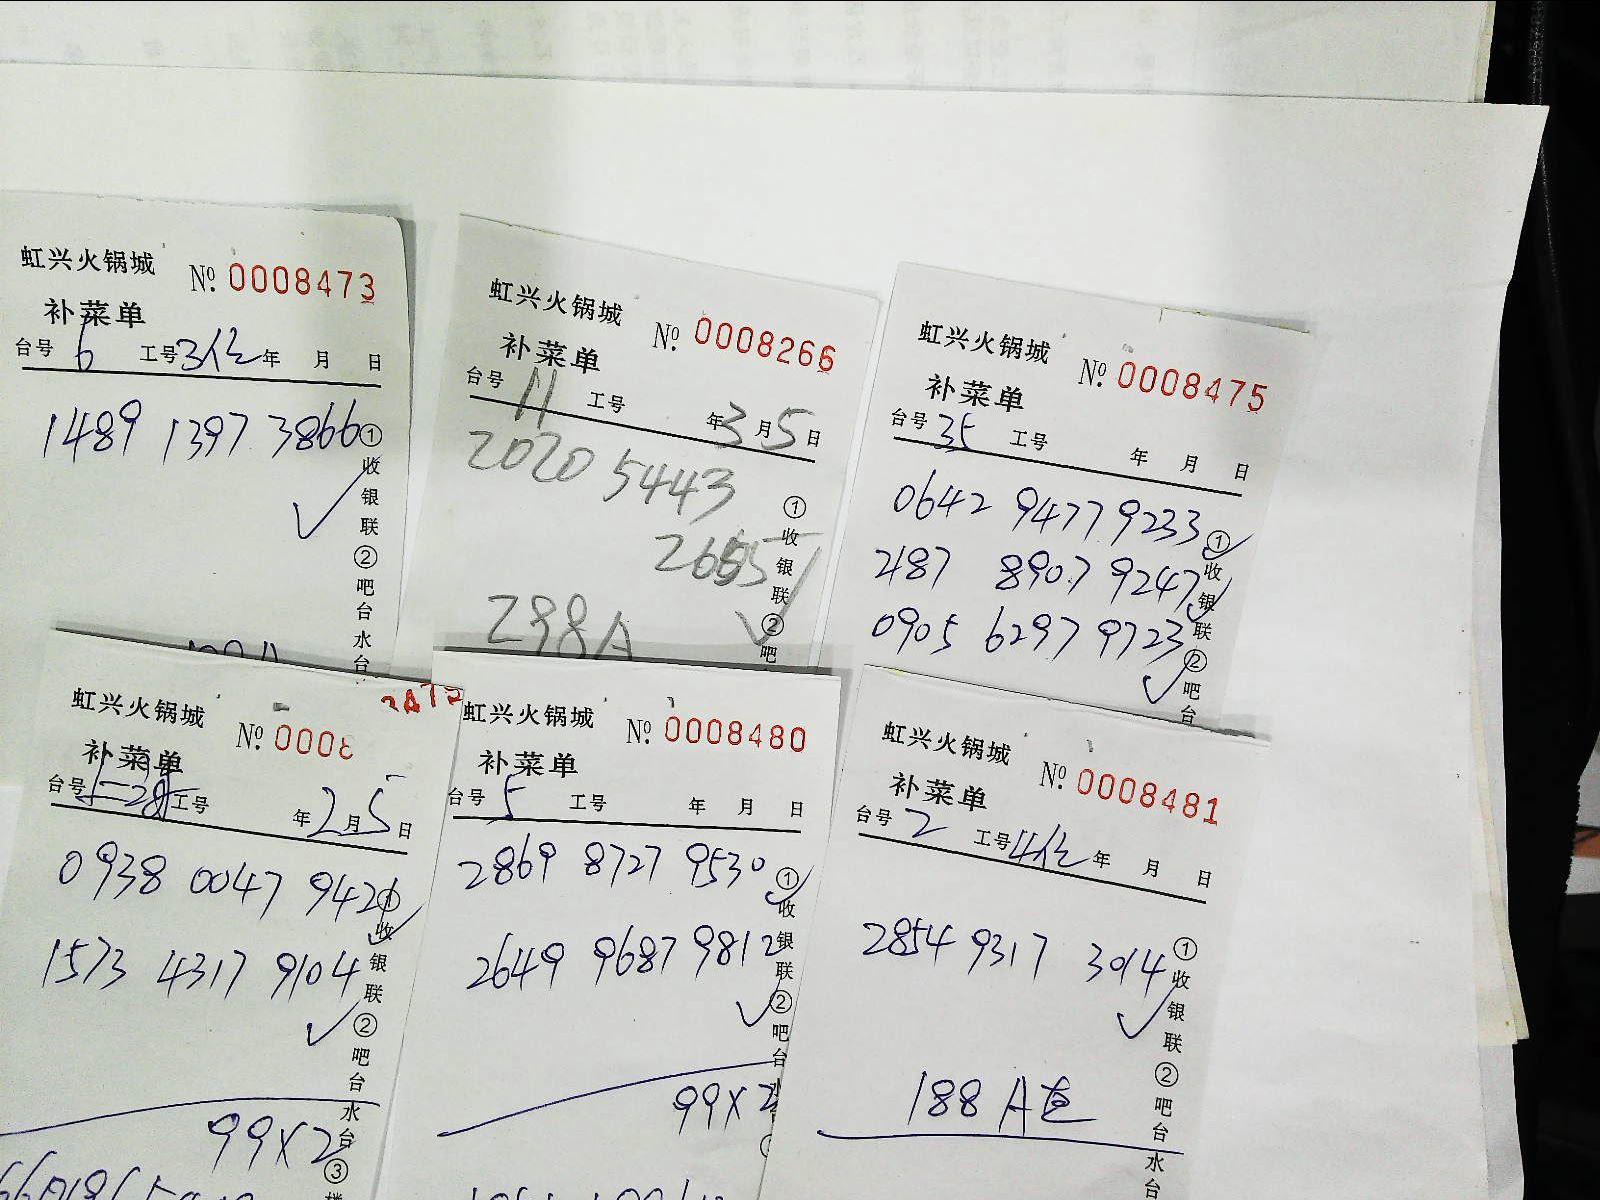 虹兴火锅城 № 0008473
补菜单
台号 6 工号 3位 年 月 日
1489 1397 3866
①收银联②吧台水台
虹兴火锅城 № 0008266
补菜单
台号 11 工号 年 3 月 5 日
2020 5443
2655
298A
①收银联②吧
虹兴火锅城 № 0008475
补菜单
台号 35 工号 年 月 日
0642 9477 9233
2187 8907 9247
0905 6297 9723
①收银联②吧台
虹兴火锅城 № 0008
补菜单
台号 工号 年 2 月 5 日
0938 0047 942
1573 4317 9104
①收银联②吧台水台③
99X2
虹兴火锅城 № 0008480
补菜单
台号 5 工号 年 月 日
2869 8727 9530
2649 9687 9812
①收银联②吧台
99X2
虹兴火锅城 № 0008481
补菜单
台号 2 工号 4位 年 月 日
2854 9317 3014
188 A
①收银联②吧台水台